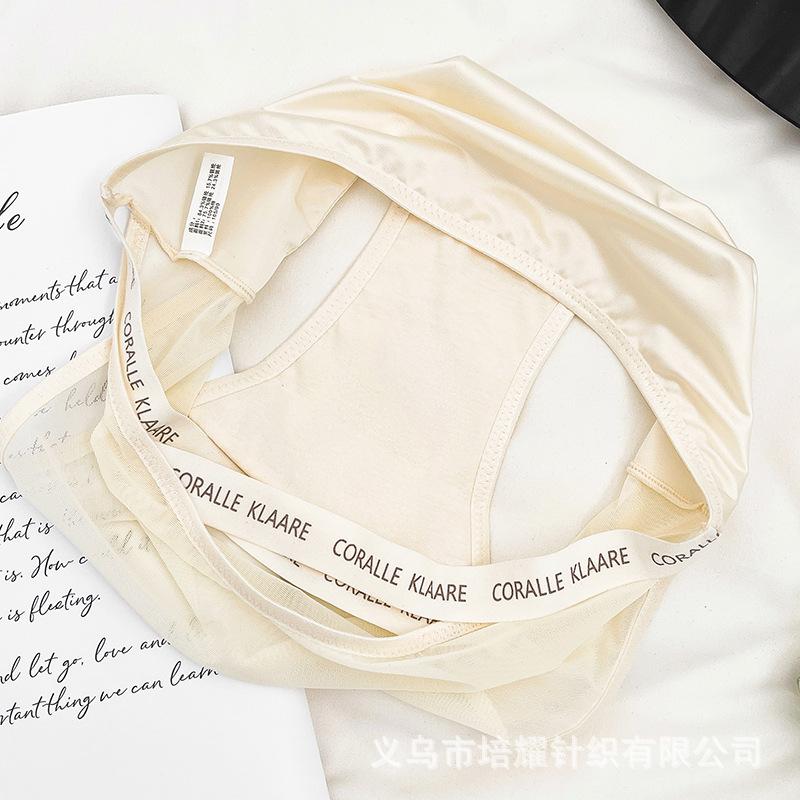 le
moments that a
unter through
comes
held
that is
is. How c
is fleeting.
nd let go, love and
rtant thing we can learn
CORALLE KLAARE
CORALLE KLAARE
CORALLE KLAARE
CORALLE KLAARE
CORALLE
CORALLE KLAARE
义乌市培耀针织有限公司